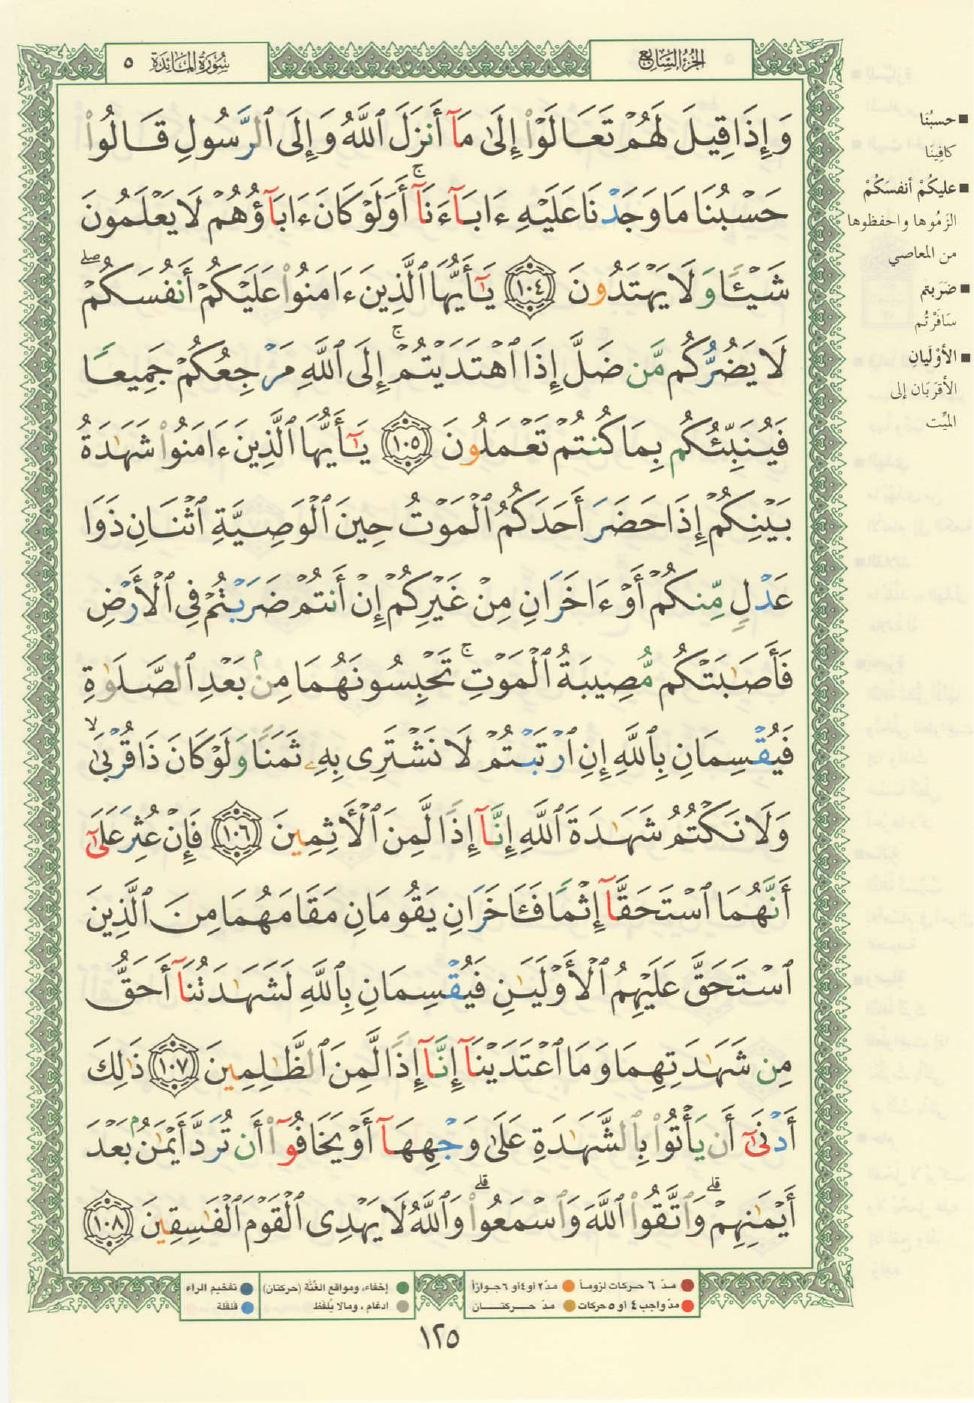 سُورَةُ المَائدَة ٥
الجُزءُ السَّابع
وَإِذَا قِيلَ لَهُمْ تَعَالَوْا۟ إِلَىٰ مَآ أَنزَلَ ٱللَّهُ وَإِلَى ٱلرَّسُولِ قَالُوا۟
حَسْبُنَا مَا وَجَدْنَا عَلَيْهِ ءَابَآءَنَآ ۚ أَوَلَوْ كَانَ ءَابَآؤُهُمْ لَا يَعْلَمُونَ
شَيْـًٔا وَلَا يَهْتَدُونَ ١٠٤ يَـٰٓأَيُّهَا ٱلَّذِينَ ءَامَنُوا۟ عَلَيْكُمْ أَنفُسَكُمْ ۖ
لَا يَضُرُّكُم مَّن ضَلَّ إِذَا ٱهْتَدَيْتُمْ ۚ إِلَى ٱللَّهِ مَرْجِعُكُمْ جَمِيعًا
فَيُنَبِّئُكُم بِمَا كُنتُمْ تَعْمَلُونَ ١٠٥ يَـٰٓأَيُّهَا ٱلَّذِينَ ءَامَنُوا۟ شَهَـٰدَةُ
بَيْنِكُمْ إِذَا حَضَرَ أَحَدَكُمُ ٱلْمَوْتُ حِينَ ٱلْوَصِيَّةِ ٱثْنَانِ ذَوَا
عَدْلٍ مِّنكُمْ أَوْ ءَاخَرَانِ مِنْ غَيْرِكُمْ إِنْ أَنتُمْ ضَرَبْتُمْ فِى ٱلْأَرْضِ
فَأَصَـٰبَتْكُم مُّصِيبَةُ ٱلْمَوْتِ ۚ تَحْبِسُونَهُمَا مِنۢ بَعْدِ ٱلصَّلَوٰةِ
فَيُقْسِمَانِ بِٱللَّهِ إِنِ ٱرْتَبْتُمْ لَا نَشْتَرِى بِهِۦ ثَمَنًا وَلَوْ كَانَ ذَا قُرْبَىٰ ۙ
وَلَا نَكْتُمُ شَهَـٰدَةَ ٱللَّهِ إِنَّآ إِذًا لَّمِنَ ٱلْـَٔاثِمِينَ ١٠٦ فَإِنْ عُثِرَ عَلَىٰٓ
أَنَّهُمَا ٱسْتَحَقَّآ إِثْمًا فَـَٔاخَرَانِ يَقُومَانِ مَقَامَهُمَا مِنَ ٱلَّذِينَ
ٱسْتَحَقَّ عَلَيْهِمُ ٱلْأَوْلَيَـٰنِ فَيُقْسِمَانِ بِٱللَّهِ لَشَهَـٰدَتُنَآ أَحَقُّ
مِن شَهَـٰدَتِهِمَا وَمَا ٱعْتَدَيْنَآ إِنَّآ إِذًا لَّمِنَ ٱلظَّـٰلِمِينَ ١٠٧ ذَٰلِكَ
أَدْنَىٰٓ أَن يَأْتُوا۟ بِٱلشَّهَـٰدَةِ عَلَىٰ وَجْهِهَآ أَوْ يَخَافُوٓا۟ أَن تُرَدَّ أَيْمَـٰنٌۢ بَعْدَ
أَيْمَـٰنِهِمْ ۗ وَٱتَّقُوا۟ ٱللَّهَ وَٱسْمَعُوا۟ ۗ وَٱللَّهُ لَا يَهْدِى ٱلْقَوْمَ ٱلْفَـٰسِقِينَ ١٠٨
حسبُنَا
كافِينَا
عليكُمْ أنفسَكُمْ
الزَمُوها واحفظوها
من المعاصي
ضرَبتم
سَافَرْتُم
الأوْلَيَانِ
الأقرَبَان إلى
الميِّت
مدّ ٦ حركات لزوماً مدّ ٢ او ٤ او ٦ جوازاً
مدّ واجب ٤ او ٥ حركات مدّ حركتان
إخفاء، ومواقع الغُنَّة (حركتان) تفخيم الراء
ادغام، ومالا يُلفَظ قلقلة
١٢٥